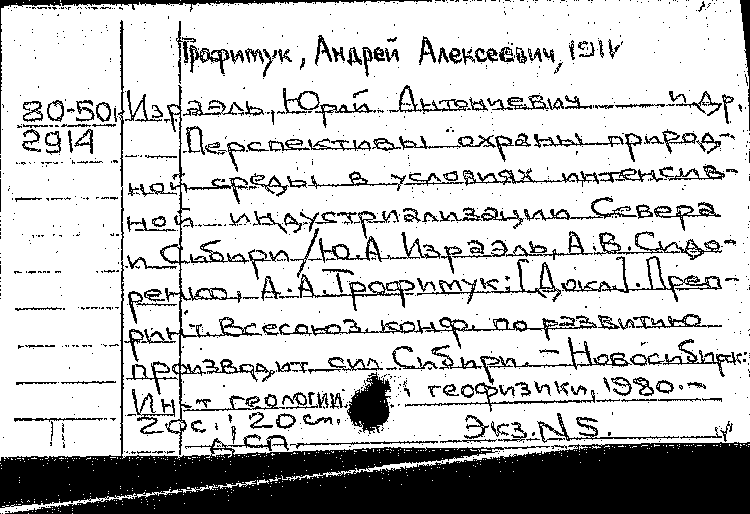 Трофимук, Андрей Алексеевич, 1911
80-50 Израэль, Юрий Антониевич и др.
2914 Перспективы охраны природ-
ной среды в условиях интенсив-
ной индустриализации Севера
и Сибири / Ю.А. Израэль, А.В. Сидо-
ренко, А.А. Трофимук: [Докл.]. Преп-
ринт. Всесоюз. конф. по развитию
производит. сил Сибири. - Новосибирск:
Ин-т геологии геофизики, 1980. -
20с.; 20 см. Экз. N 5.
ДСП.